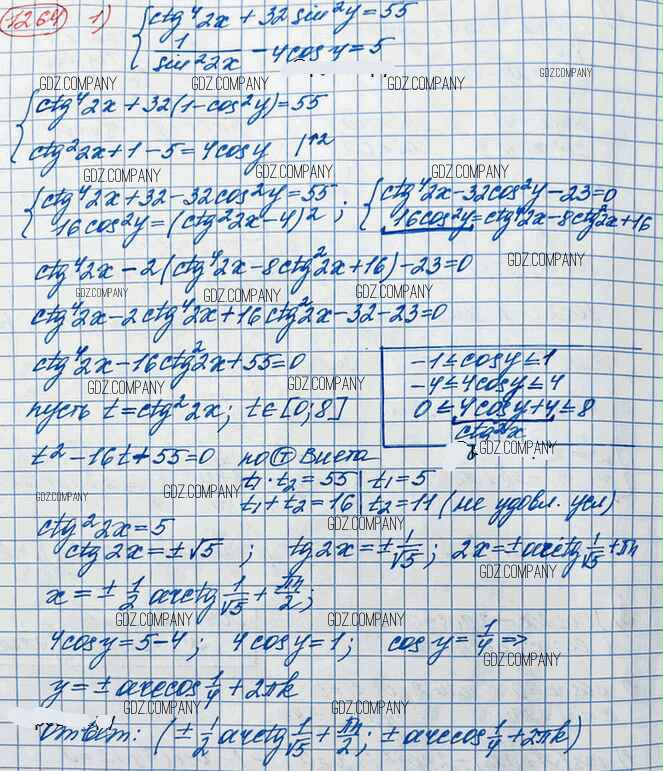 1264 1) { ctg⁴2x + 32 sin²y = 55
1/sin²2x - 4cos y = 5
GDZ.COMPANY GDZ.COMPANY GDZ.COMPANY GDZ.COMPANY
{ ctg⁴2x + 32(1-cos²y) = 55
ctg²2x + 1 - 5 = 4cos y |↑2
GDZ.COMPANY GDZ.COMPANY GDZ.COMPANY
{ ctg⁴2x + 32 - 32cos²y = 55 ; { ctg⁴2x - 32cos²y - 23 = 0
16cos²y = (ctg²2x - 4)² 16cos²y = ctg⁴2x - 8ctg²2x + 16
ctg⁴2x - 2(ctg⁴2x - 8ctg²2x + 16) - 23 = 0
GDZ.COMPANY
GDZ.COMPANY GDZ.COMPANY GDZ.COMPANY
ctg⁴2x - 2ctg⁴2x + 16ctg²2x - 32 - 23 = 0
ctg⁴2x - 16ctg²2x + 55 = 0
-1 ≤ cos y ≤ 1
-4 ≤ 4cos y ≤ 4
0 ≤ 4cos y + 4 ≤ 8
ctg²2x
GDZ.COMPANY GDZ.COMPANY
пусть t = ctg²2x; t ∈ [0; 8]
GDZ.COMPANY
t² - 16t + 55 = 0 по Ⓣ Виета
t₁ · t₂ = 55 | t₁ = 5
t₁ + t₂ = 16 | t₂ = 11 (не удовл. усл)
GDZ.COMPANY GDZ.COMPANY GDZ.COMPANY
ctg²2x = 5
ctg 2x = ±√5 ; tg 2x = ± 1/√5 ; 2x = ± arctg 1/√5 + πn
GDZ.COMPANY
x = ± 1/2 arctg 1/√5 + πn/2 ;
GDZ.COMPANY GDZ.COMPANY
4cos y = 5 - 4 ; 4cos y = 1 ; cos y = 1/4 =>
GDZ.COMPANY
y = ± arccos 1/4 + 2πk
GDZ.COMPANY GDZ.COMPANY
ответ: (± 1/2 arctg 1/√5 + πn/2 ; ± arccos 1/4 + 2πk)